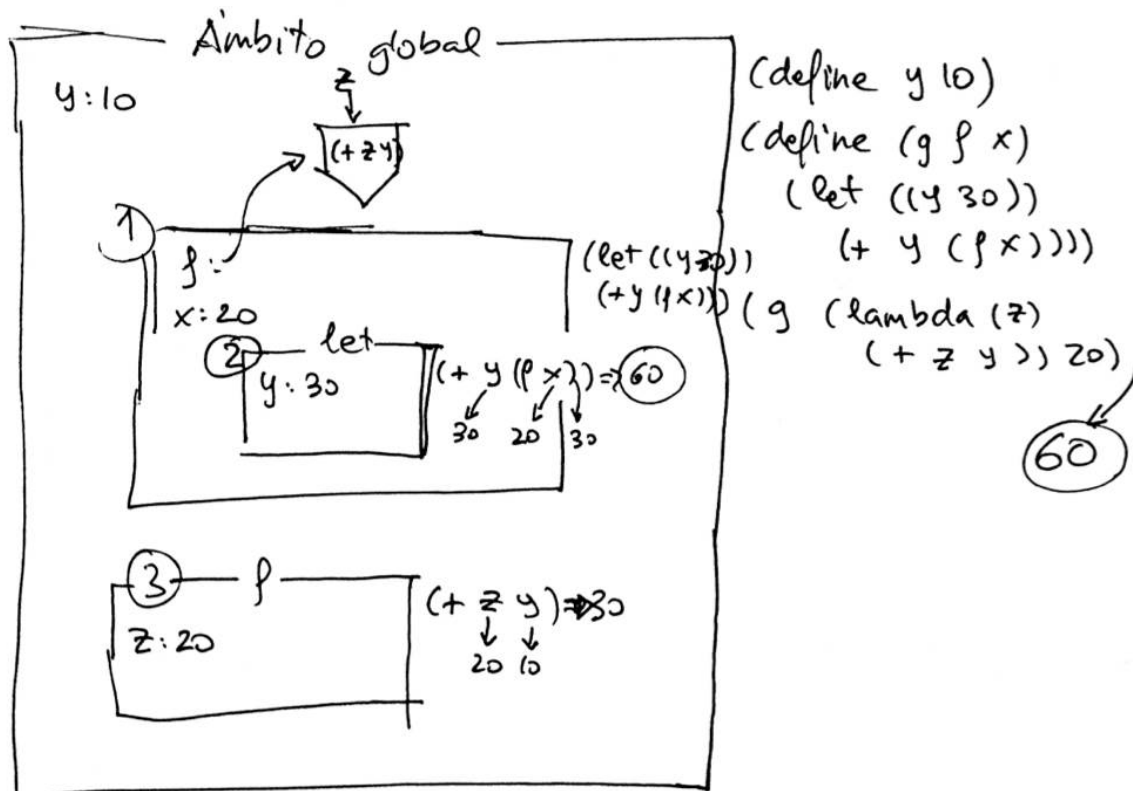 Ámbito global
y:10
z
(+ z y)
1
f:
x:20
(let ((y 30))
(+ y (f x)))
2 let
y:30
(+ y (f x)) => 60
30 20 30
3 f
z:20
(+ z y) => 30
20 10
(define y 10)
(define (g f x)
(let ((y 30))
(+ y (f x))))
(g (lambda (z)
(+ z y)) 20)
60